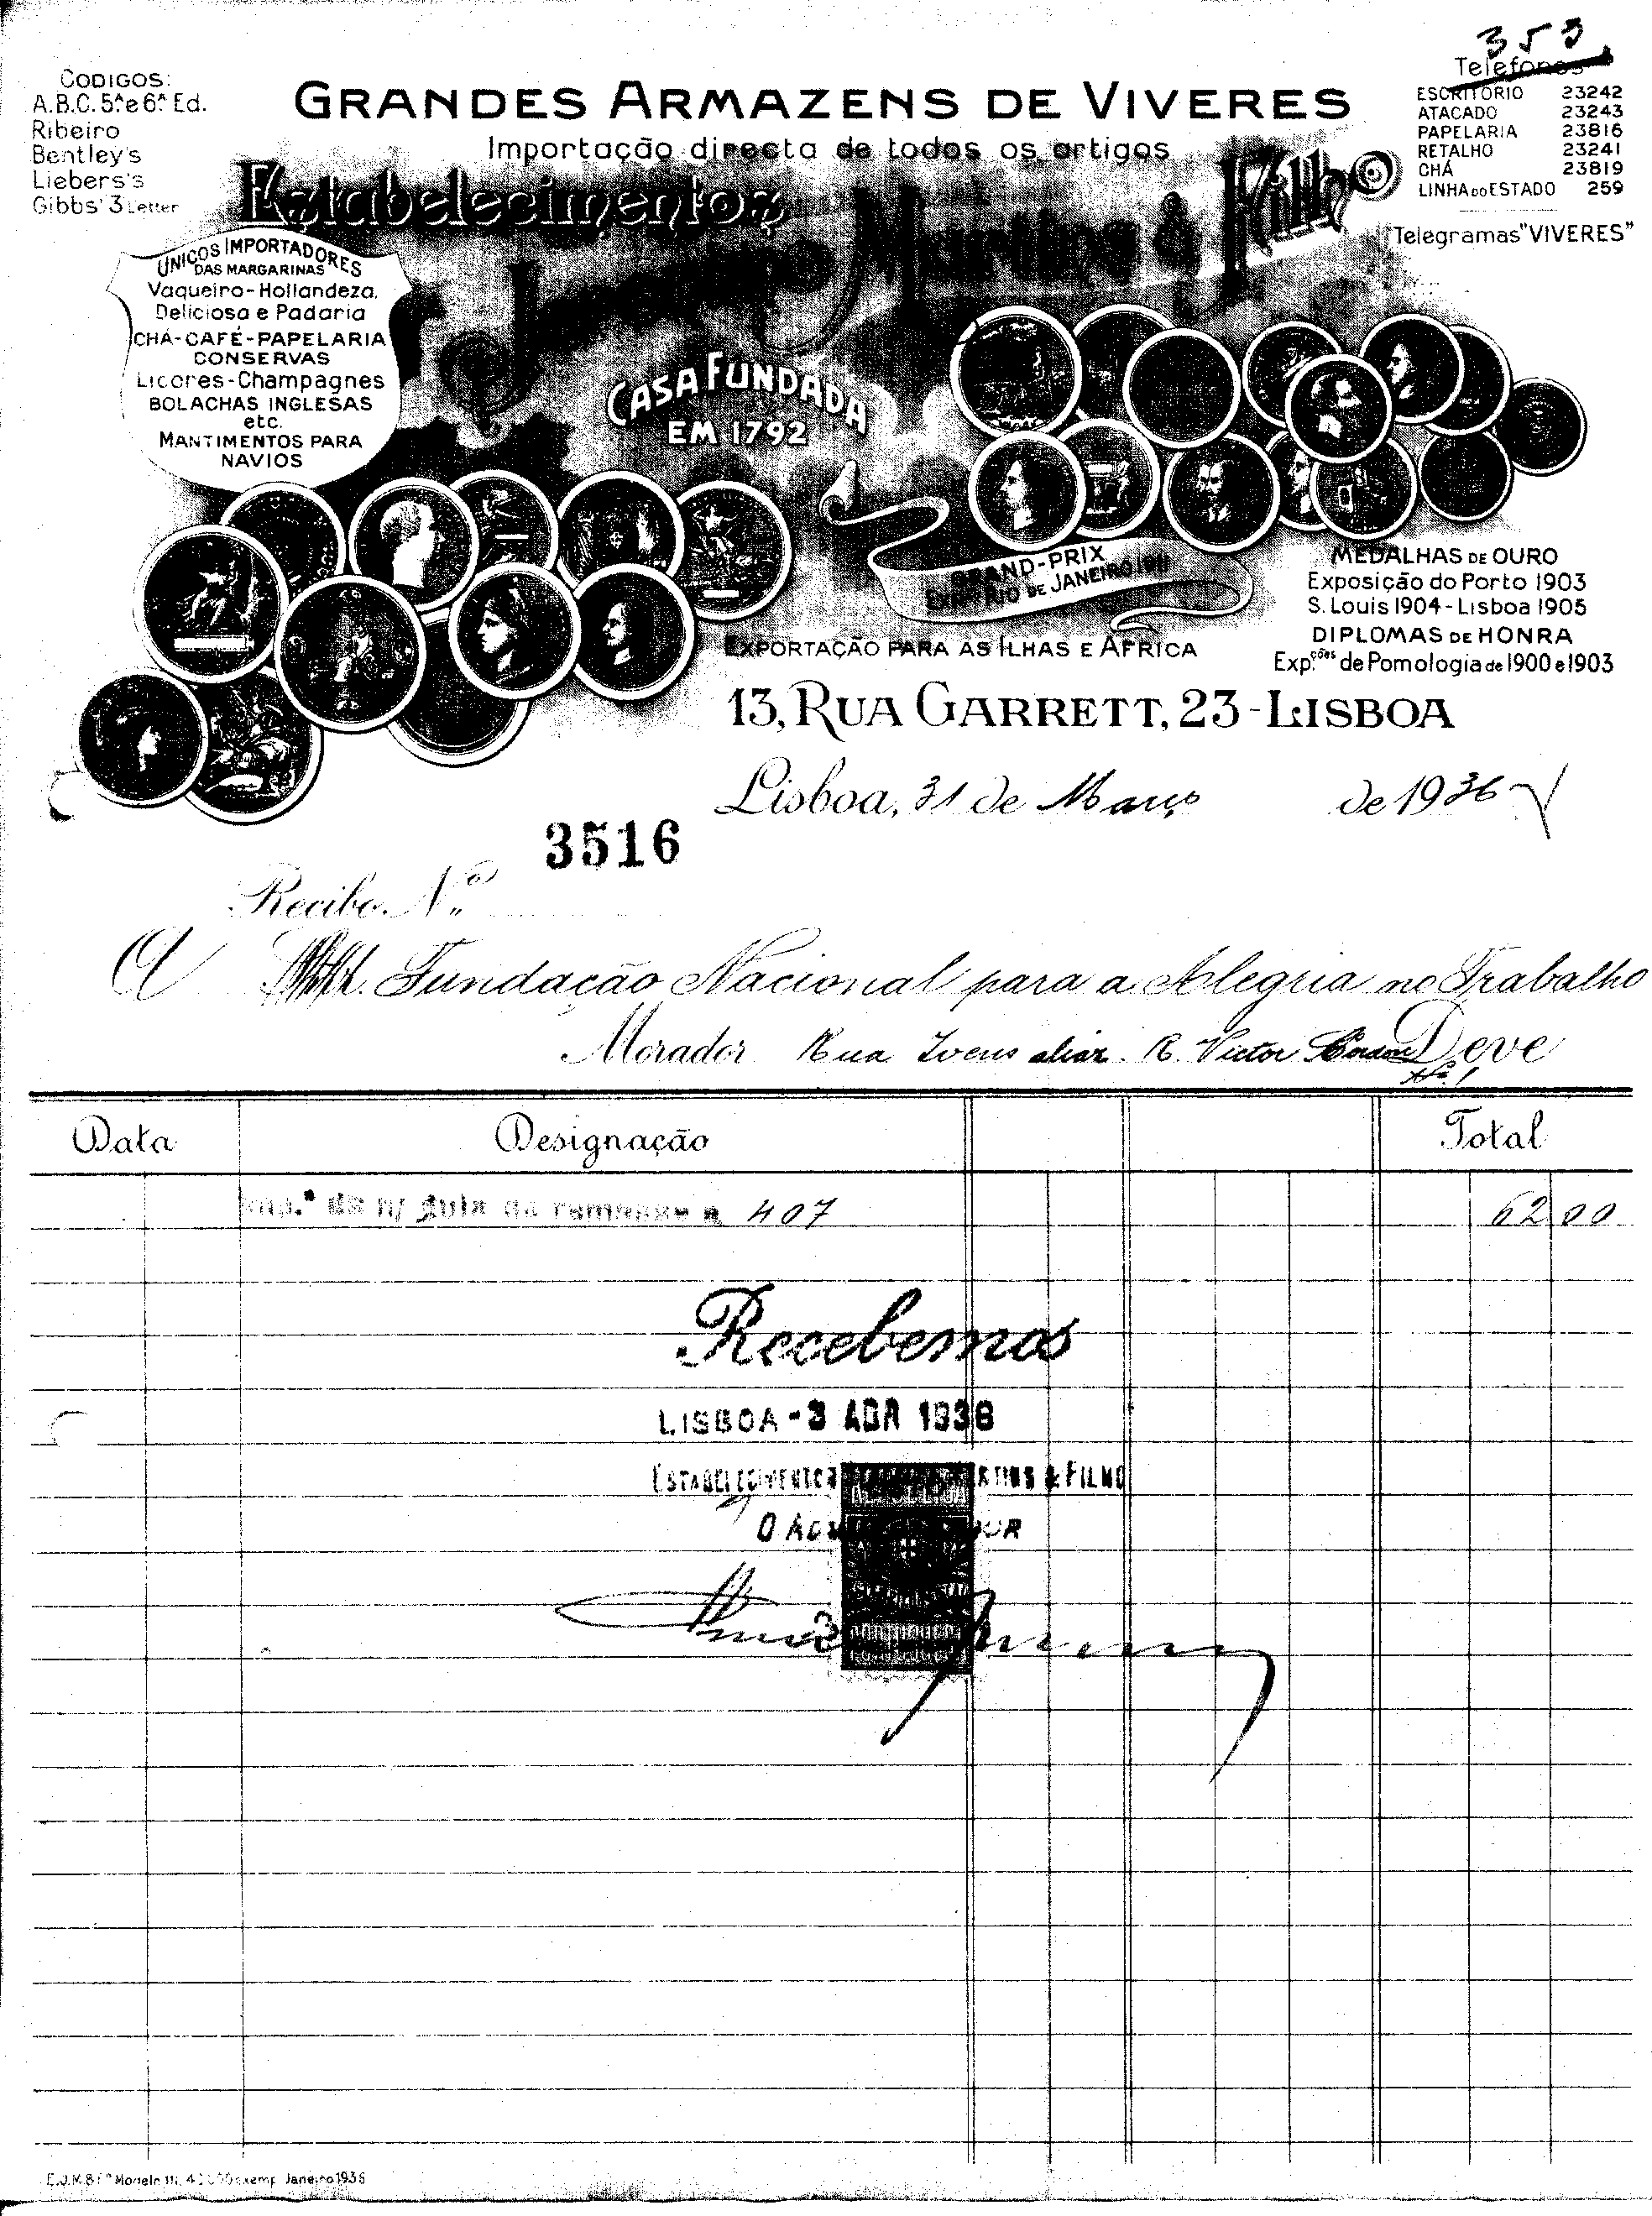 353
CODIGOS:
A.B.C. 5ª e 6ª Ed.
Ribeiro
Bentley's
Liebers's
Gibbs' 3 Letter
GRANDES ARMAZENS DE VIVERES
Importação directa de todos os artigos
Estabelecimentos Jeronymo Martins & Filho
Telefones
ESCRITÓRIO 23242
ATACADO 23243
PAPELARIA 23816
RETALHO 23241
CHÁ 23819
LINHA DO ESTADO 259
Telegramas "VIVERES"
UNICOS IMPORTADORES
DAS MARGARINAS
Vaqueiro-Hollandeza,
Deliciosa e Padaria
CHÁ-CAFÉ-PAPELARIA
CONSERVAS
Licores-Champagnes
BOLACHAS INGLESAS
etc.
MANTIMENTOS PARA
NAVIOS
CASA FUNDADA
EM 1792
GRAND-PRIX
RIO DE JANEIRO 1911
EXPORTAÇÃO PARA AS ILHAS E AFRICA
MEDALHAS DE OURO
Exposição do Porto 1903
S. Louis 1904-Lisboa 1905
DIPLOMAS DE HONRA
Exp.ções de Pomologia de 1900 e 1903
13, RUA GARRETT, 23-LISBOA
Lisboa, 31 de Março de 1936
3516
Recibo Nº
A Fundação Nacional para a Alegria no Trabalho
Morador Rua Ivens aliaz R. Victor Cordon Deve
Nº 1
Data Designação Total
de n/ guia de remessa 407 62 00
Recebemos
LISBOA - 3 ABR 1936
ESTABELECIMENTOS MARTINS & FILHO
O ADMINISTRADOR
Janeiro 1936